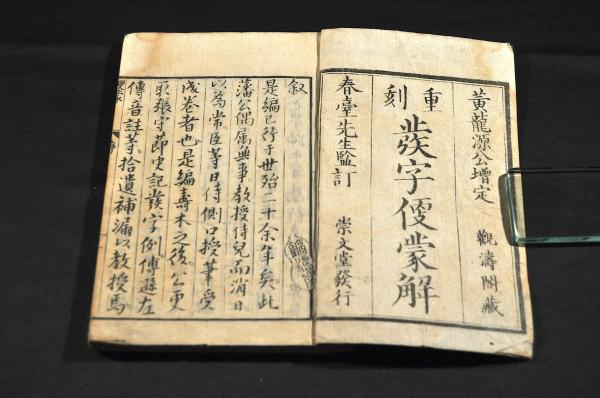 黄龍源公增定
觀濤閣藏
重刻
發字便蒙解
春臺先生監訂
崇文堂發行
叙
是編已行于世殆二十余年矣此
藩公偶属無事教授侍兒而消日
以為常臣等日侍側口授筆受
成卷者也是編壽木之後公更
取張守節史記發字例傅遜左
傳音註等拾遺補漏以教授焉